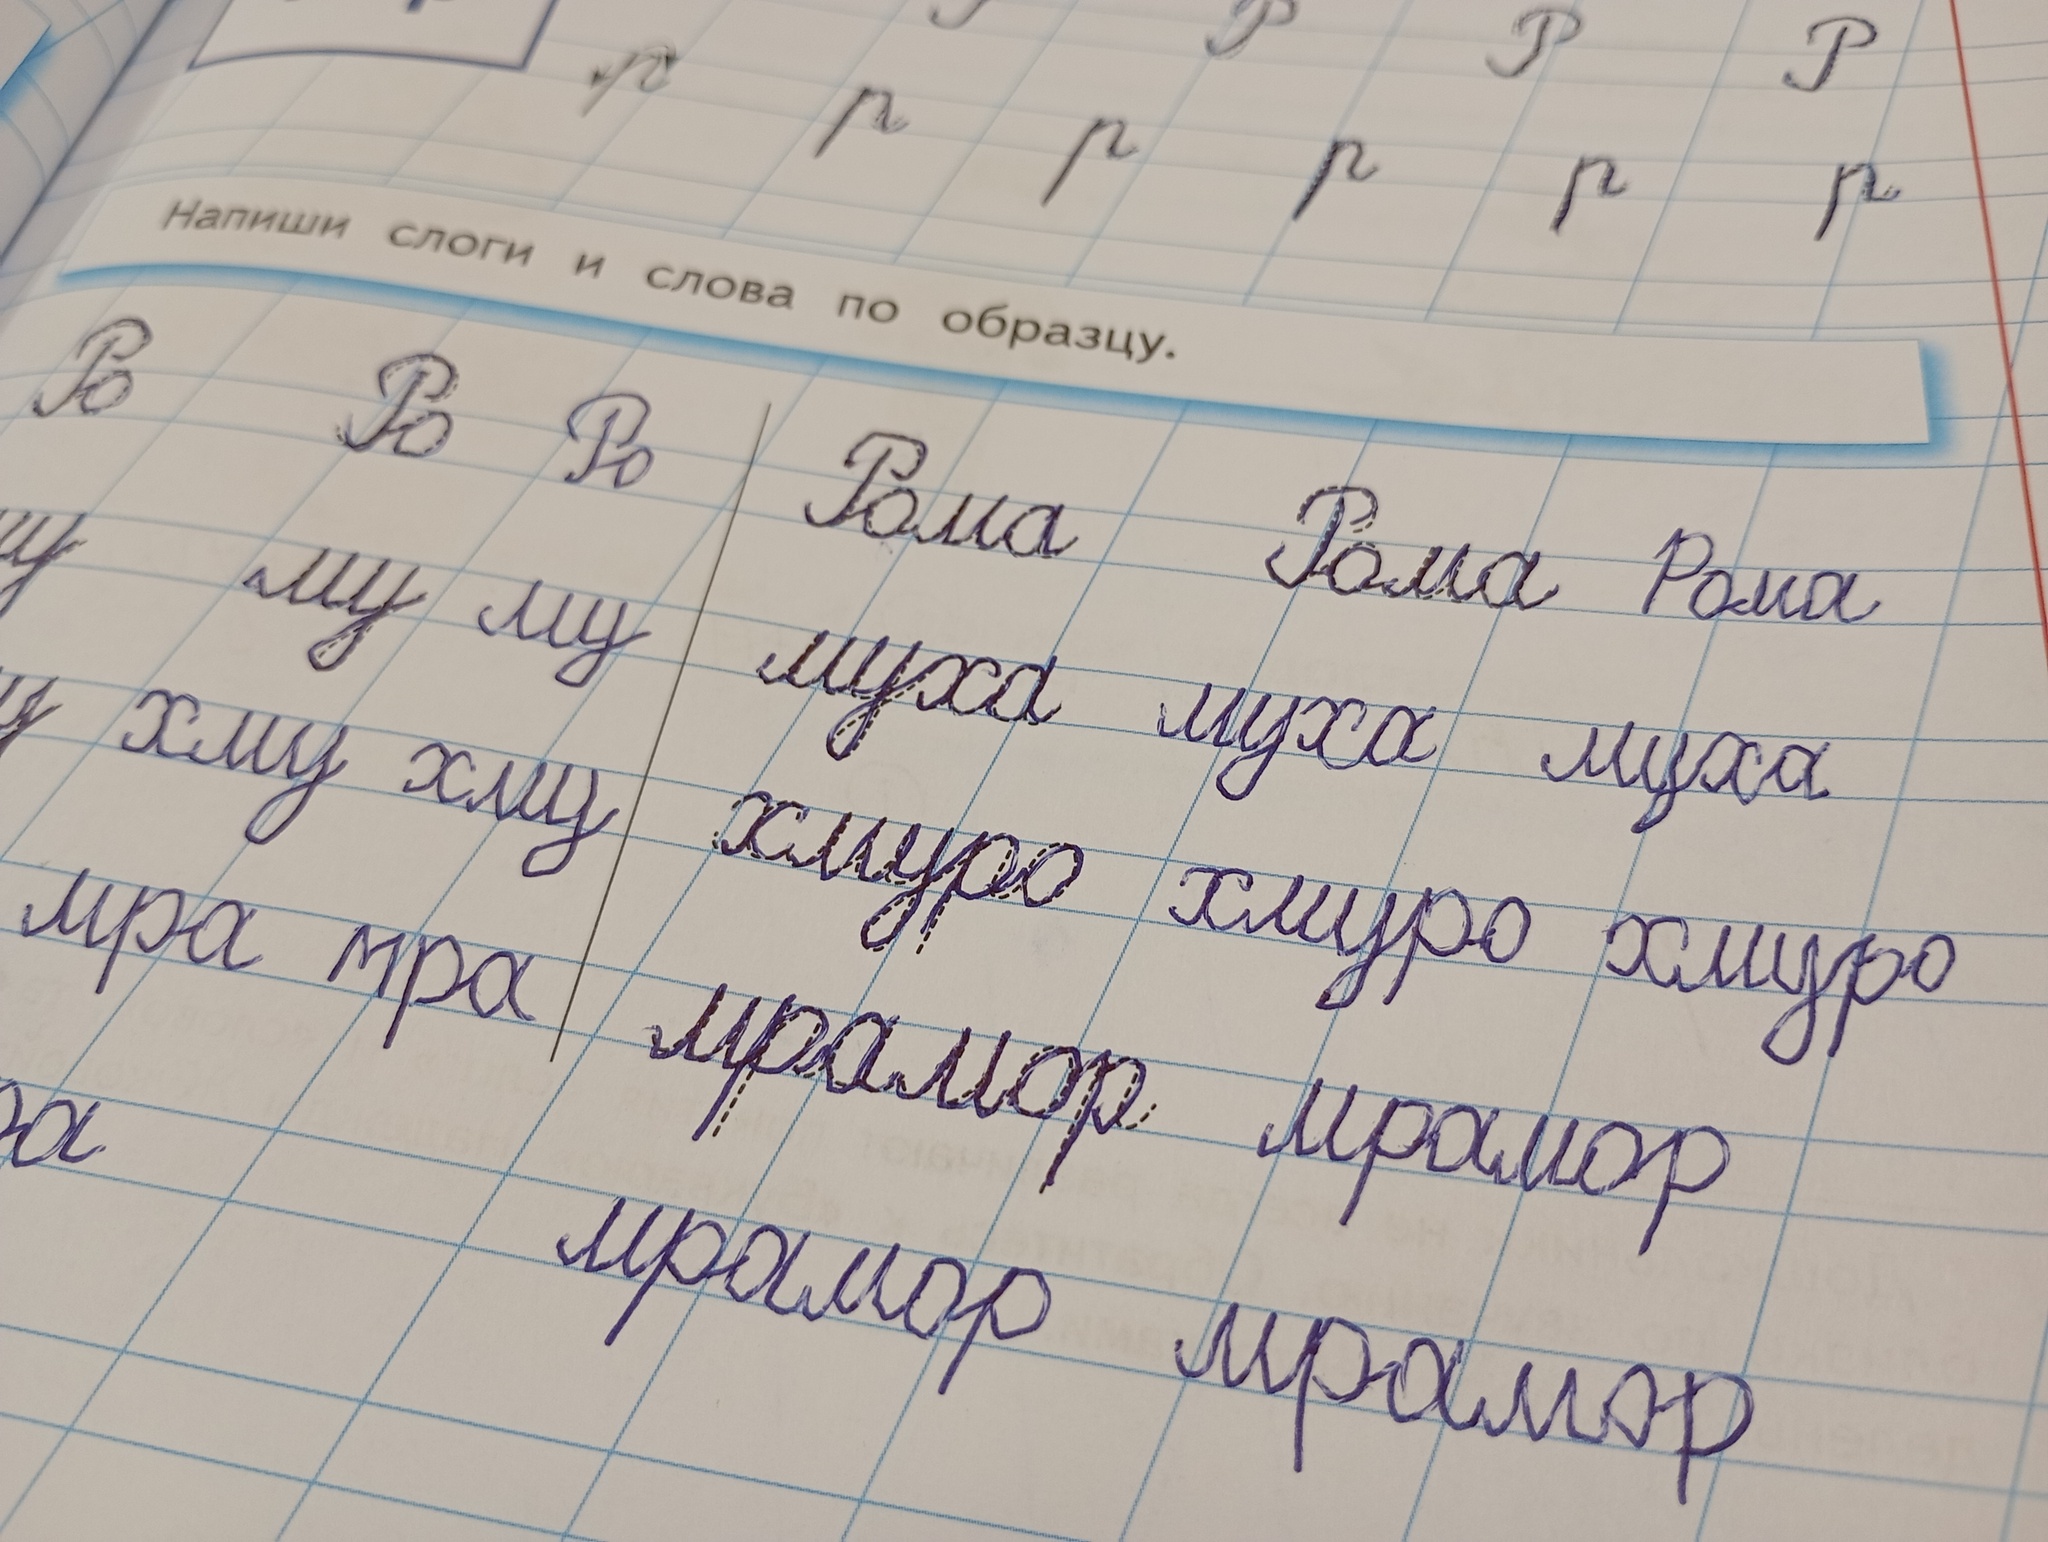 Р Р Р
р р р р р р
Напиши слоги и слова по образцу.
Ро Ро Ро Рома Рома Рома
му му муха муха муха
хму хму хмуро хмуро хмуро
мра мра мрамор мрамор
мрамор мрамор